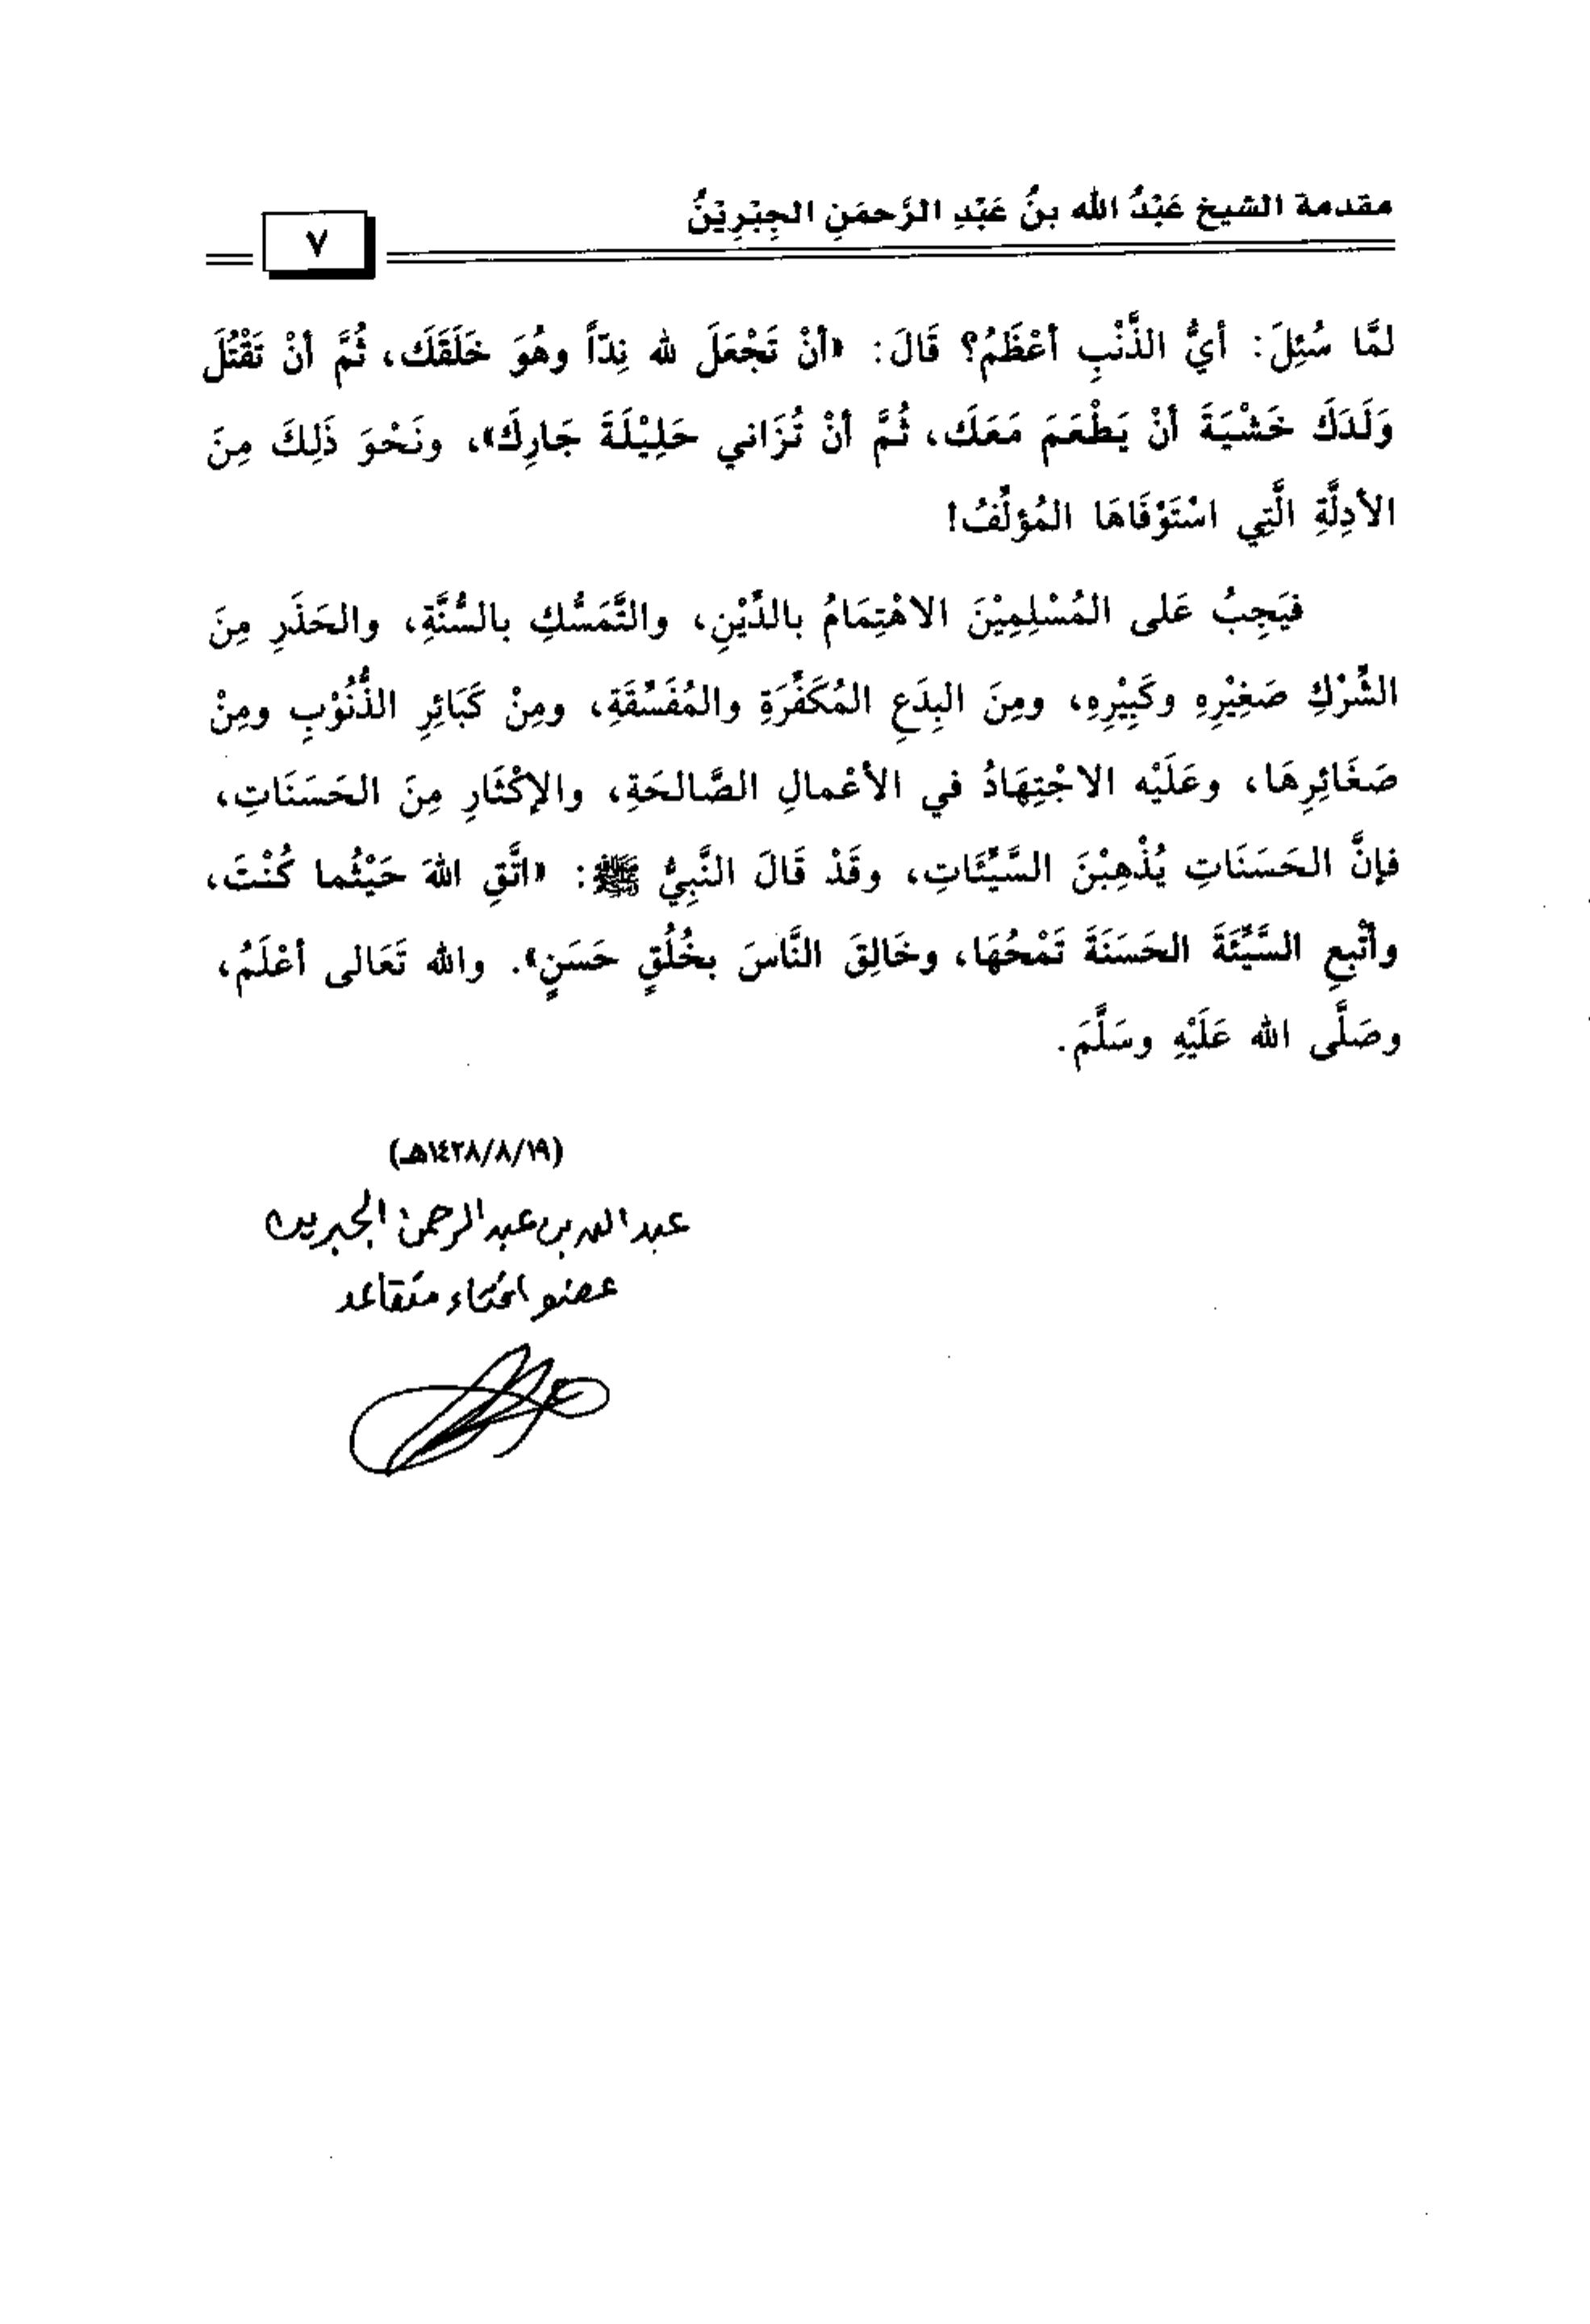 مقدمة الشيخ عَبْدُ الله بنُ عَبْدِ الرَّحمَنِ الجِبْرِيْنُ
٧
لمَّا سُئِلَ: أيُّ الذَّنْبِ أعْظَمُ؟ قَالَ: «أنْ تَجْعَلَ لله نِدّاً وهُوَ خَلَقَكَ، ثُمَّ أنْ تَقْتُلَ
وَلَدَكَ خَشْيَةَ أنْ يَطْعَمَ مَعَكَ، ثُمَّ أنْ تُزَاني حَلِيْلَةَ جَارِكَ»، ونَحْوَ ذَلِكَ مِنَ
الأدِلَّةِ الَّتِي اسْتَوْفَاهَا المُؤلِّفُ!
فيَجِبُ عَلى المُسْلِمِيْنَ الاهْتِمَامُ بالدِّيْنِ، والتَّمَسُّكِ بالسُّنَّةِ، والحَذَرِ مِنَ
الشِّرْكِ صَغِيْرِهِ وكَبِيْرِهِ، ومِنَ البِدَعِ المُكَفِّرَةِ والمُفَسِّقَةِ، ومِنْ كَبَائِرِ الذُّنُوْبِ ومِنْ
صَغَائِرِهَا، وعَلَيْه الاجْتِهَادُ في الأعْمالِ الصَّالحَةِ، والإكْثَارِ مِنَ الحَسَنَاتِ،
فإنَّ الحَسَنَاتِ يُذْهِبْنَ السَّيِّئَاتِ، وقَدْ قَالَ النَّبِيُّ ﷺ: «اتَّقِ اللهَ حَيْثُما كُنْتَ،
وأتْبِعِ السَّيِّئَةَ الحَسَنَةَ تَمْحُهَا، وخَالِقَ النَّاسَ بخُلُقٍ حَسَنٍ». والله تَعَالى أعْلَمُ،
وصَلَّى الله عَلَيْهِ وسَلَّمَ.
(١٤٢٨/٨/١٩هـ)
عبد الله بن عبد الرحمن الجبرين
عضو افتاء متقاعد